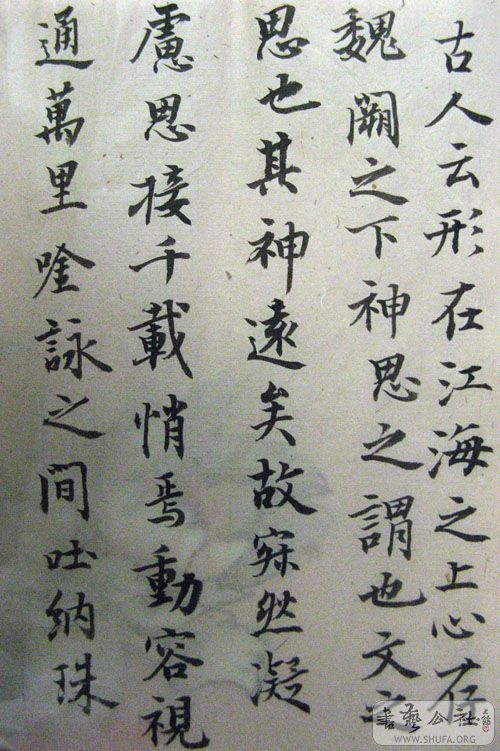 古人云形在江海之上心存
魏闕之下神思之謂也文之
思也其神遠矣故寂然凝
慮思接千載悄焉動容視
通萬里唫詠之間吐納珠
書藝公社
WWW.SHUFA.ORG